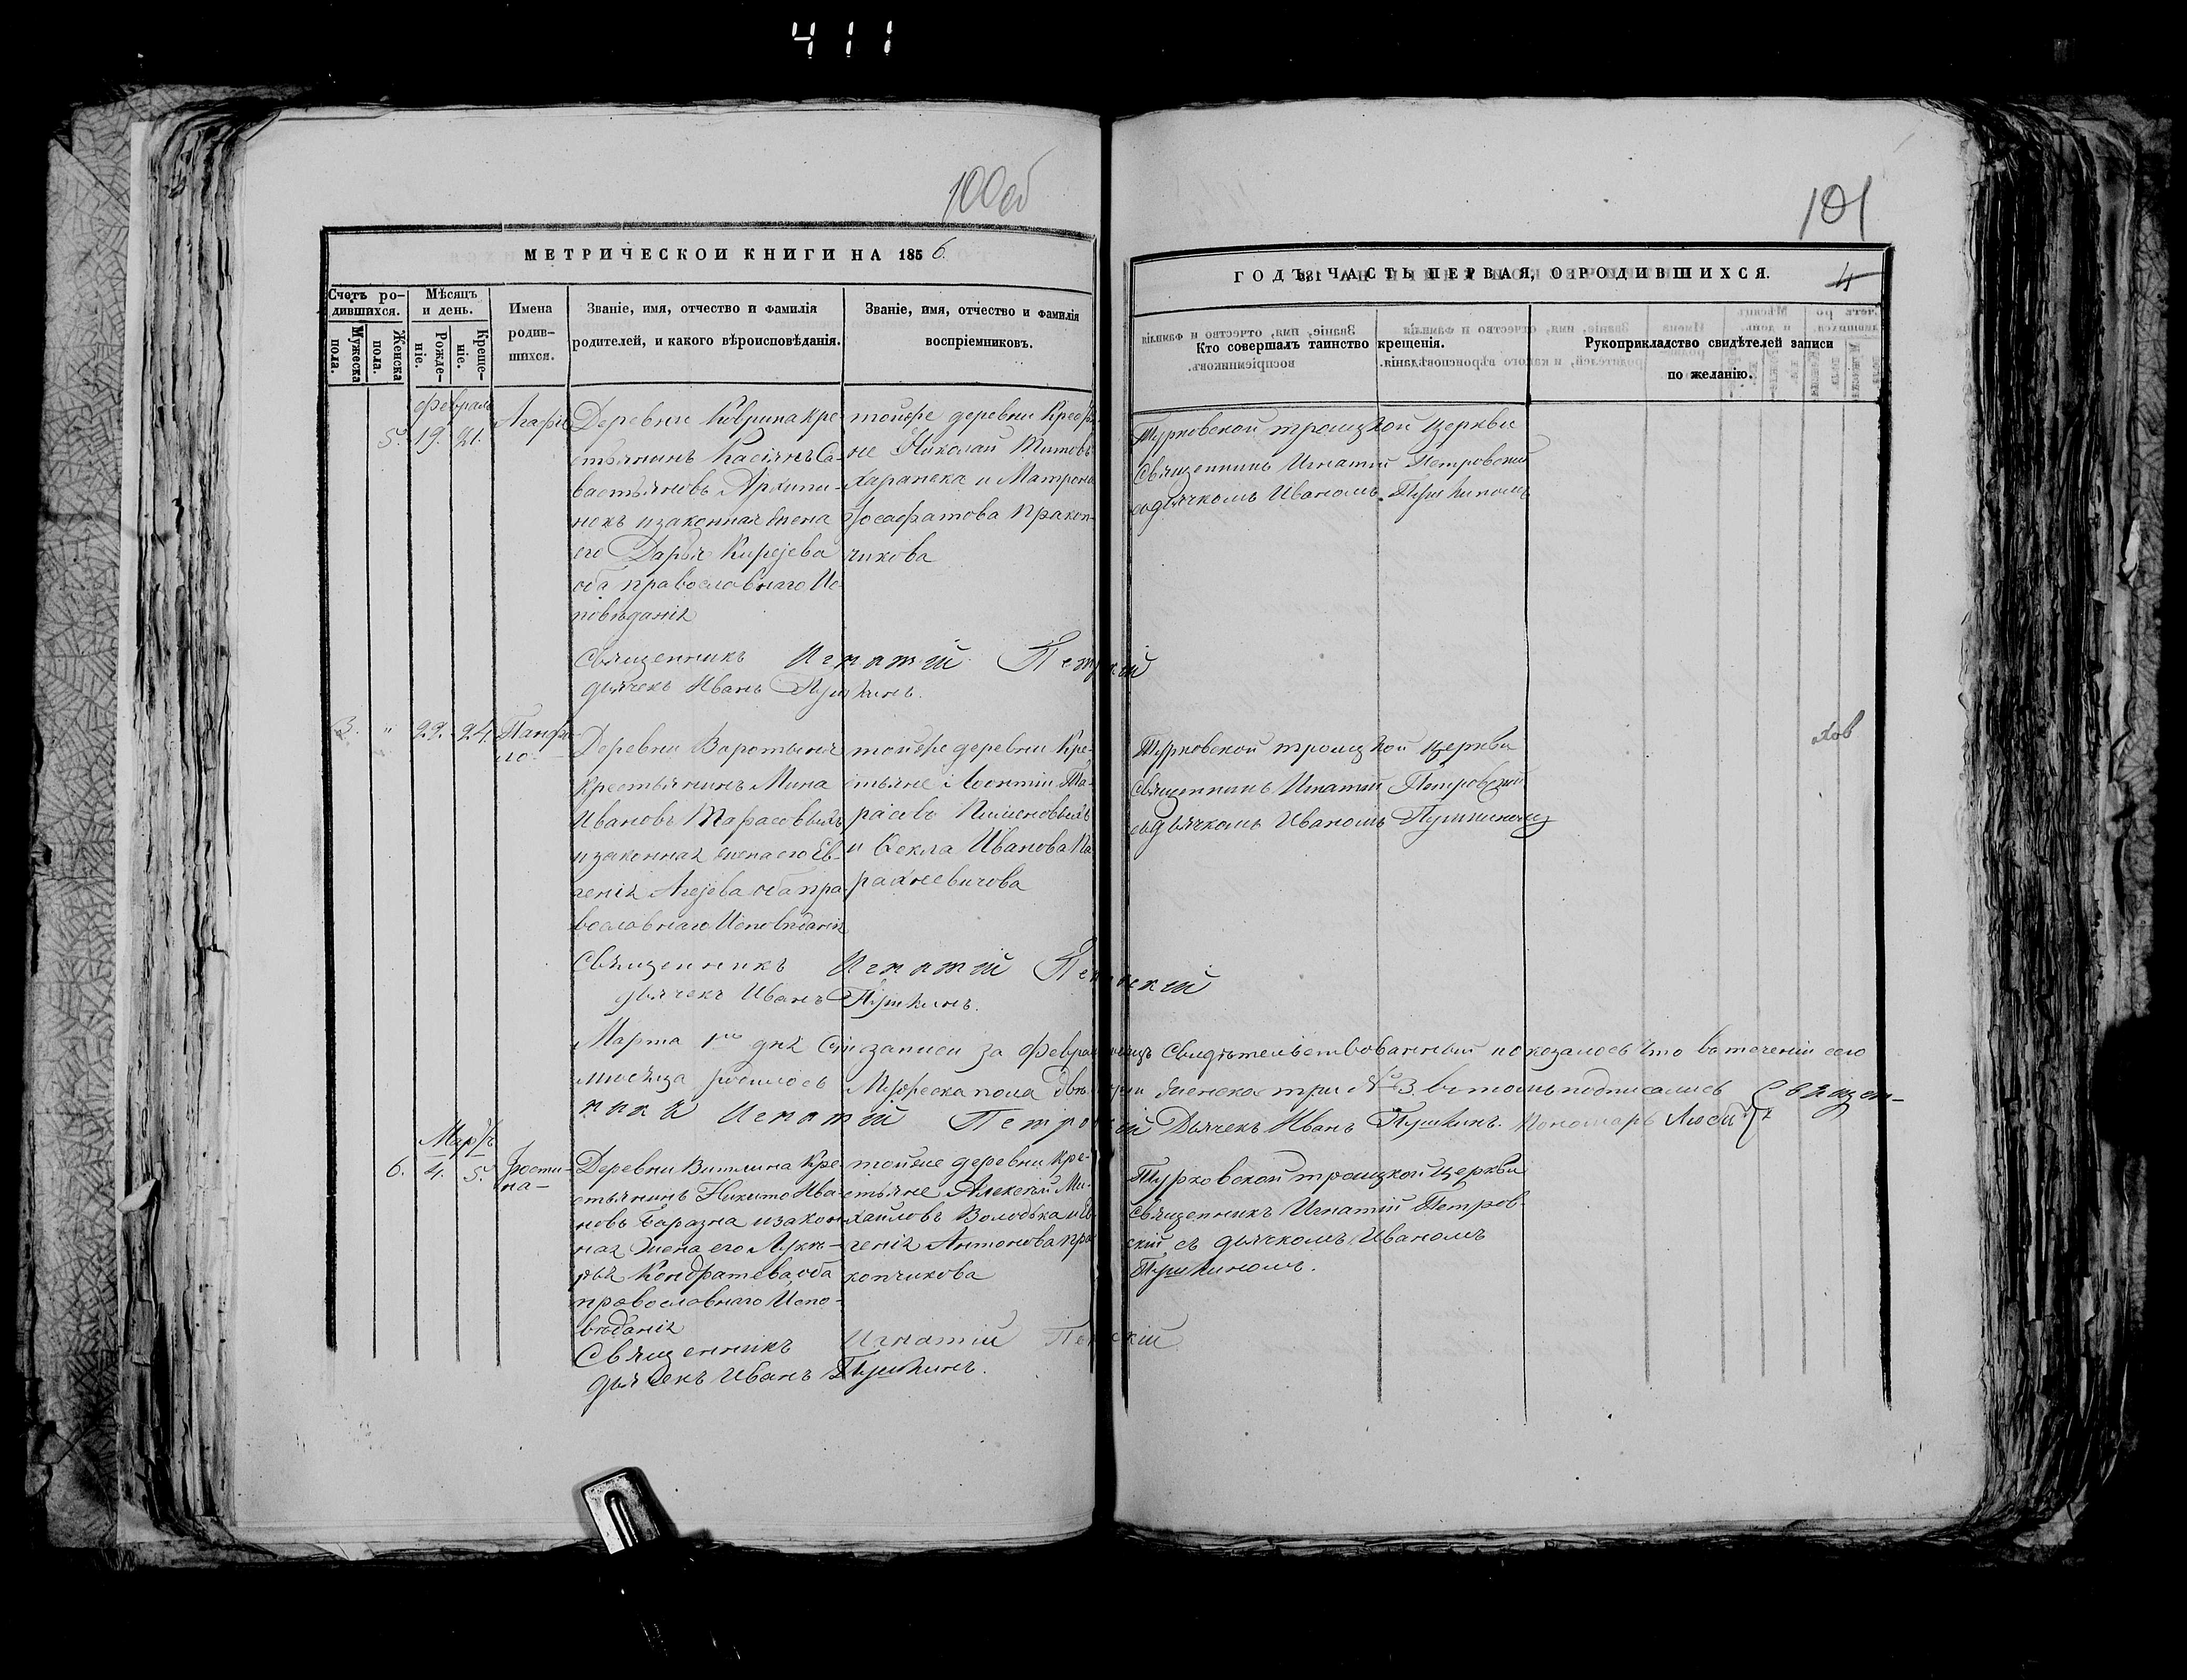 411
100об
101
МЕТРИЧЕСКОЙ КНИГИ НА 1856
ГОДЪ, ЧАСТЬ ПЕРВАЯ, О РОДИВШИХСЯ.
4
Счетъ ро-
дившихся.
Мужеска
пола.
Женска
пола.
Мѣсяцъ
и день.
Рожде-
ніе.
Креще-
ніе.
Имена
родив-
шихся.
Званіе, имя, отчество и фамилія
родителей, и какого вѣроисповѣданія.
Званіе, имя, отчество и фамилія
воспріемниковъ.
Кто совершалъ таинство крещенія.
Рукоприкладство свидѣтелей записи
по желанію.
Февраль
5. 19. 21.
Агафія
Деревни Ковrина кре
стьянинъ Касіянъ Са-
вастьяновъ Архипи-
нокъ и законная жена
его Дарья Кирејева
оба православнаго Ис
повѣданія
тойже деревни Крестья
не Николай Титовъ
Харанека и Матрона
Іосафатова Пракоп-
чикова
Турковской троицкой церкви
Священникъ Игнатій Петровскій
съ дьячкомъ Иваномъ Пушкиномъ
Священникъ Игнатій Петровскій
дьячекъ Иванъ Пушкинъ.
3. " 22. 24.
Панфи
ло
Деревни Воротыни
Крестьянинъ Мина
Ивановъ Тарасовыхъ
и законная жена его Ев-
гения Агејева оба пра-
вославнаго Исповѣданія
тойже деревни Кре-
стьяне Леонтій Та-
расовъ Пименовыхъ
и Фекла Иванова Па
рахневичова
Турковской троицкой церкви
Священникъ Игнатій Петровскій
съ дьячкомъ Иваномъ Пушкиномъ
Священникъ Игнатій Петровскій
дьячекъ Иванъ Пушкинъ.
Марта 1го дня Сіи записи за Февраль мцъ Свидѣтельствованный и оказалось что въ теченіи сего
мисяца родилось Мужеска пола два женска три № 3 въ томъ подписались Священ-
никъ Игнатій Петровскій Дьячекъ Иванъ Пушкинъ. Пономарь
Мартъ
6. 4. 5.
Іусти-
на
Деревни Витлина Кре
стьянинъ Никито Ива-
новъ Баразна и закон
ная жена его Луке-
рья Кондратева, оба
православнаго Испо-
вѣданія
тойже деревни Кре-
стьяне Алексѣй Ми-
хайловъ Володька и Ев
генія Антонова Пра
копчикова
Турковской троицкой церкви
Священникъ Игнатій Петров-
скій съ дьячкомъ Иваномъ
Пушкиномъ.
Священникъ Игнатій Петровскій
дьячекъ Иванъ Пушкинъ.